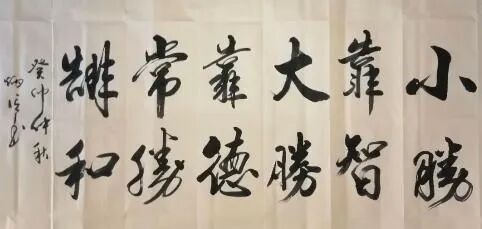 小勝
靠智
大勝
靠德
常勝
靠和
癸卯仲秋